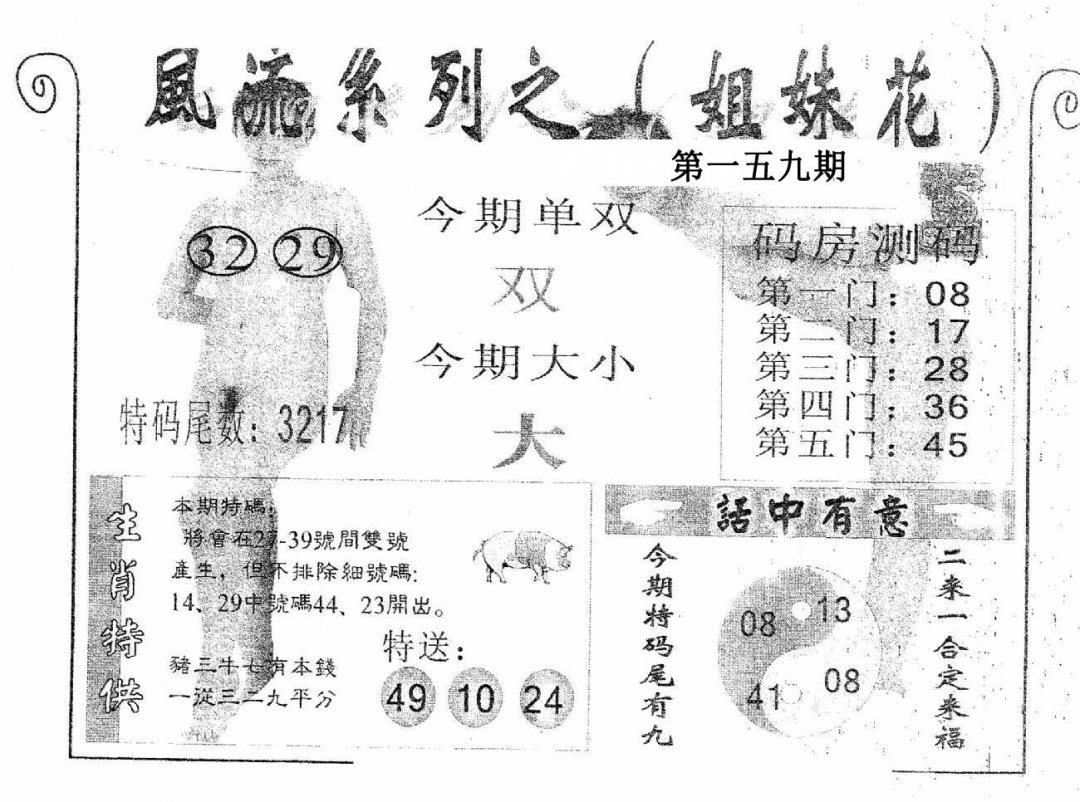 風流系列之(姐妹花)
第一五九期
32 29
今期单双
双
今期大小
大
特码尾数: 3217
码房测码
第一门: 08
第二门: 17
第三门: 28
第四门: 36
第五门: 45
生肖特供
本期特碼:
將會在27-39號間雙號
產生, 但不排除細號碼:
14、29中號碼44、23開出。
豬三牛七有本錢
一從三二九平分
特送:
49 10 24
話中有意
今期特码尾有九
08 13
41 08
二来一合定来福